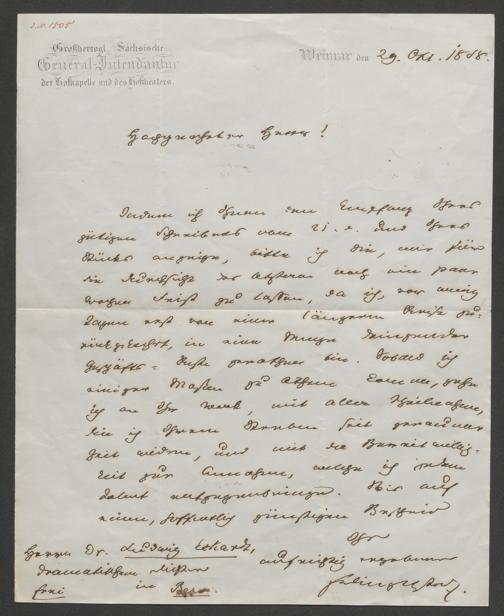 I.N. 1505
Großherzogl. Sächsische
General-Intendantur
der Hofkapelle und des Hoftheaters.
Weimar den 29. Okt. 1858.
Hochgeehrter Herr!
Indem ich Ihnen den Empfang Ihres
gütigen Schreibens vom 21. d. und Ihres
Stücks anzeige, bitte ich Sie, mir für
die Durchsicht des letzteren noch ein paar
Wochen Frist zu lassen, da ich, vor wenig
Tagen erst von einer längeren Reise zu-
rückgekehrt, in eine Menge dringender
Geschäfte gerathen bin. Sobald ich
einiger Maßen zu Athem komme, gehe
ich an Ihr Werk, mit aller Theilnahme,
die ich Ihrem Streben seit geraumer
Zeit widme, und mit der Bereitwillig-
keit zur Annahme, welche ich jedem
Talent entgegenbringe. Bis auf
einen, hoffentlich günstigen Bescheid
Ihr
aufrichtig ergebener
Herrn Dr. Ludwig Eckardt,
dramatischem Dichter
frei in Bern.